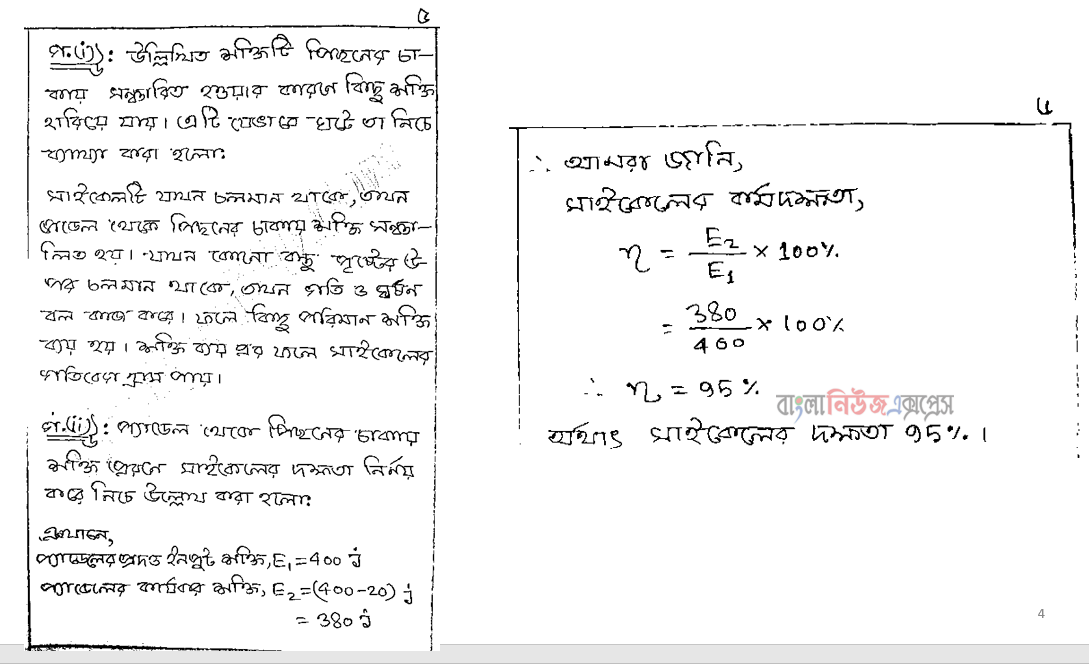 ৫
প.(i): উল্লিখিত শক্তিটি পিছনের চা-
কায় সঞ্চারিত হওয়ার কারণে কিছু শক্তি
হারিয়ে যায়। এটি যেভাবে ঘটে তা নিচে
ব্যাখ্যা করা হলো:
সাইকেলটি যখন চলমান থাকে, তখন
প্যাডেল থেকে পিছনের চাকায় শক্তি সঞ্চা-
লিত হয়। যখন কোনো বস্তু পৃষ্টের উ-
পর চলমান থাকে, তখন গতি ও ঘর্ষন
বল কাজ করে। ফলে কিছু পরিমান শক্তি
ব্যয় হয়। শক্তি ব্যয় এর ফলে সাইকেলের
গতিবেগ হ্রাস পায়।
প.(ii): প্যাডেল থেকে পিছনের চাকায়
শক্তি প্রেরণে সাইকেলের দক্ষতা নির্নয়
করে নিচে উল্লেখ করা হলো:
এখানে,
প্যাডেলের প্রদত্ত ইনপুট শক্তি, E₁ = 400 j
প্যাডেলের কার্যকর শক্তি, E₂ = (400-20) j
= 380 j
৬
∴ আমরা জানি,
সাইকেলের কার্যদক্ষতা,
η = E₂/E₁ × 100%
= 380/400 × 100%
∴ η = 95%
বাংলা নিউজ এক্সপ্রেস
অর্থাৎ সাইকেলের দক্ষতা 95%।
4